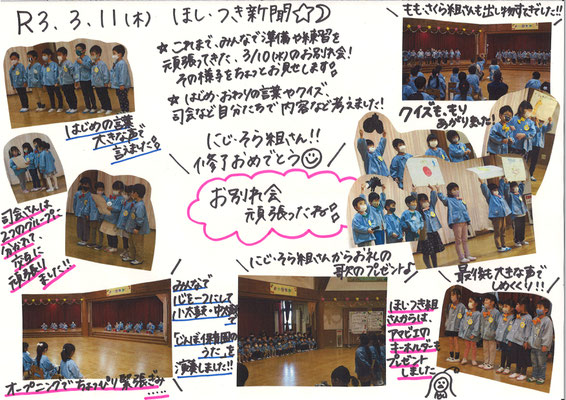 R3.3.11(木) ほし・つき新聞☆☽
★これまで、みんなで準備や練習を
頑張ってきた、3/10(水)のお別れ会!
その様子をちょっとお見せします。
★はじめ・おわりの言葉やクイズ、
司会など自分たちで内容など考えました!
もも・さくら組さんも出し物すてきでした!!
クイズも、もり
あがりました!
はじめの言葉
大きな声で
言えました。
にじ・そら組さん!!
修了おめでとう☺
お別れ会
頑張ったね。
司会さんは
2つのグループに
分かれて、
交互に
頑張り
ました!!
にじ・そら組さんからお礼の
歌のプレゼント♪
最後も大きな声で
しめくくり!!
みんなで
心を一つにして
小太鼓・中太鼓
うた」を
演奏しました!!
ほし・つき組
さんからは、
アマビエの
キーホルダーを
プレゼント
しました
オープニングでちょっぴり緊張ぎみ.....